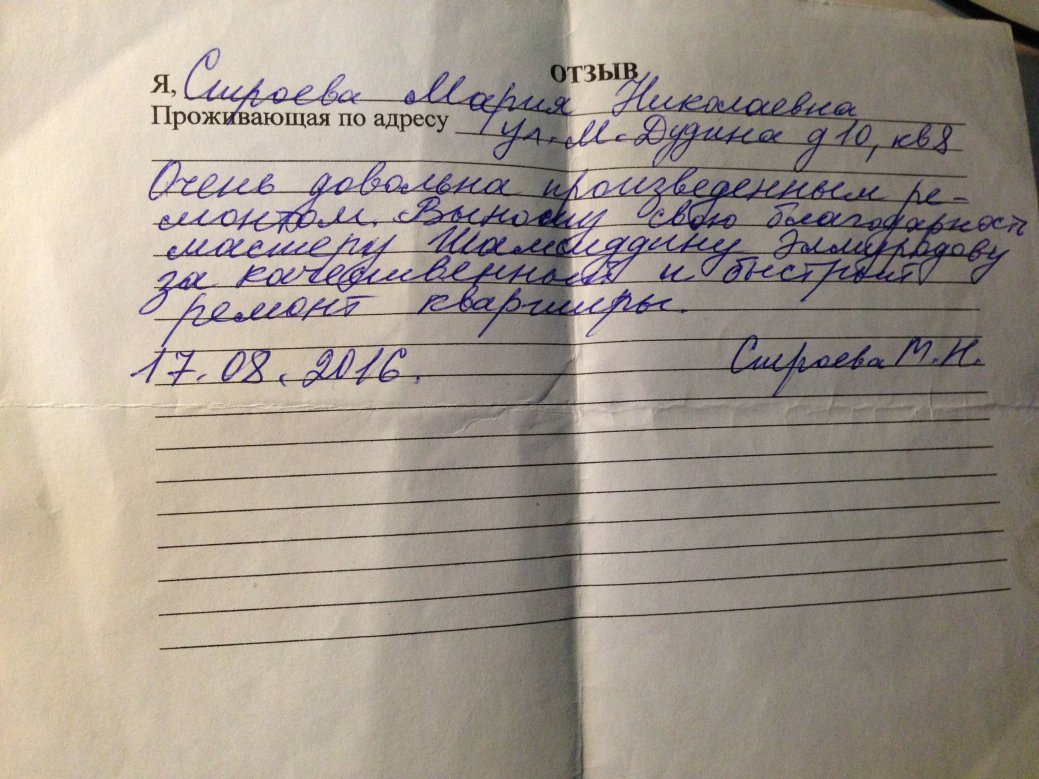 ОТЗЫВ
Я, Строева Мария Николаевна
Проживающая по адресу ул. М. Дудина д 10, кв 8
Очень довольна произведенным ре-
монтом. Выношу свою благодарность
мастеру Шамсиддину Элмурадову
за качественность и быстрый
ремонт квартиры.
17.08.2016. Строева М.Н.